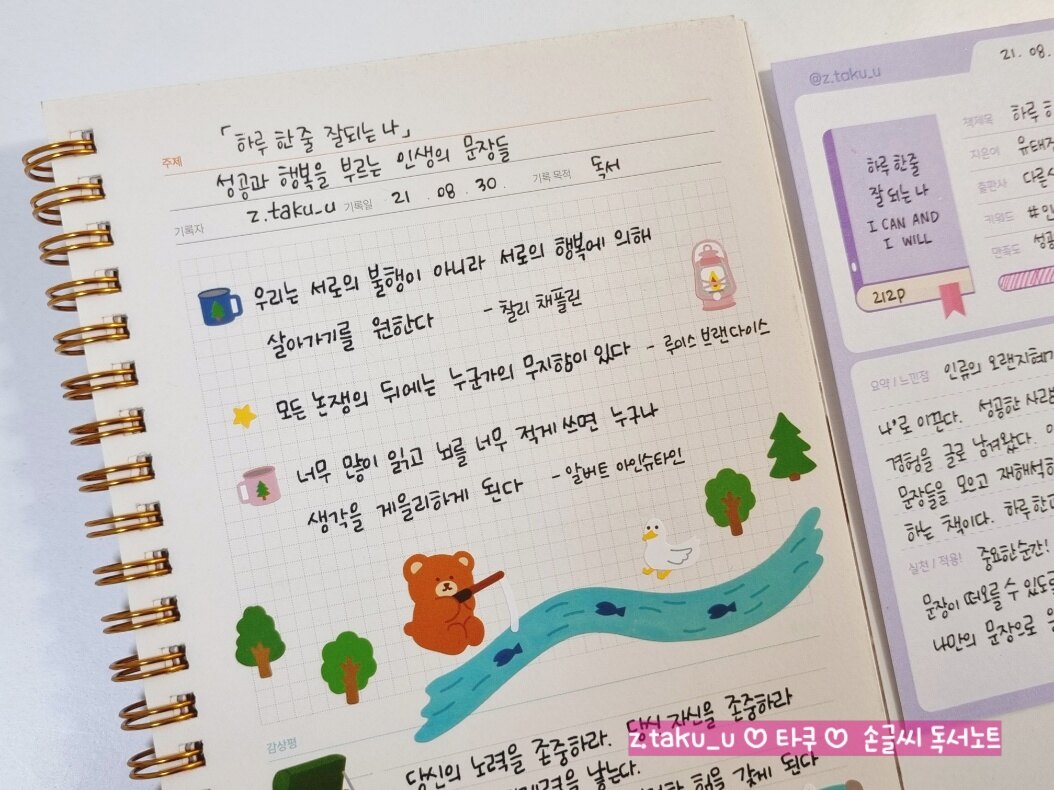 「하루 한 줄 잘되는 나」
주제
성공과 행복을 부르는 인생의 문장들
기록자 z.taku_u 기록일 21 . 08 . 30. 기록 목적 독서
우리는 서로의 불행이 아니라 서로의 행복에 의해
살아가기를 원한다 - 찰리 채플린
모든 논쟁의 뒤에는 누군가의 무지함이 있다 - 루이스 브랜다이스
너무 많이 읽고 뇌를 너무 적게 쓰면 누구나
생각을 게을리하게 된다 - 알버트 아인슈타인
감상평
당신의 노력을 존중하라. 당신 자신을 존중하라
낳는다.
힘을 갖게 된다
@z.taku_u
21. 08.
하루 한 줄
잘 되는 나
I CAN AND
I WILL
212p
책제목 하루
지은이 유태
출판사 다른
키워드 #인
만족도 성공
요약 / 느낀점 인류의 오랜지혜가
나'로 이끈다. 성공한 사람
경험을 글로 남겨왔다.
문장들을 모으고 재해석
하는 책이다. 하루한
실천 / 적용! 중요한순간!
문장이 떠오를 수 있도록
나만의 문장으로
z.taku_u ♡ 타쿠 ♡ 손글씨 독서노트